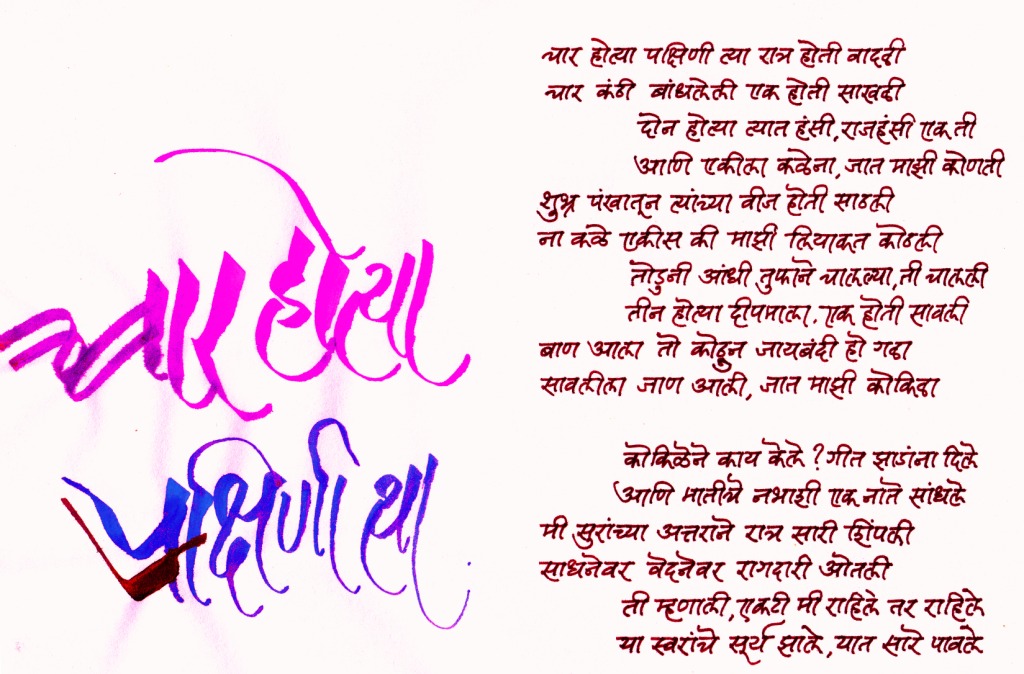 चार होत्या
पक्षिणी त्या
चार होत्या पक्षिणी त्या रात्र होती वादळी
चार कंठी बांधलेली एक होती साखळी
दोन होत्या त्यात हंसी, राजहंसी एक ती
आणि एकीला कळेना, जात माझी कोणती
शुभ्र पंखातून त्यांच्या वीज होती साठली
ना कळे एकीस की माझी लियाकत कोठली
तोडुनी आंधी तुफाने चालल्या, ती चालली
तीन होत्या दीपमाला. एक होती सावली
बाण आला तो कोठून जायबंदी हो गळा
सावलीला जाण आली, जात माझी कोकिळा
कोकिळेने काय केले ? गीत झाडांना दिले
आणि मातीचे नभाशी एक नाते सांधले
मी सुरांच्या अत्तराने रात्र सारी शिंपली
साधनेवर वेदनेवर रागदारी ओतली
ती म्हणाली, एकटी मी राहिले तर राहिले
या स्वरांचे सूर्य झाले, यात सारे पावले